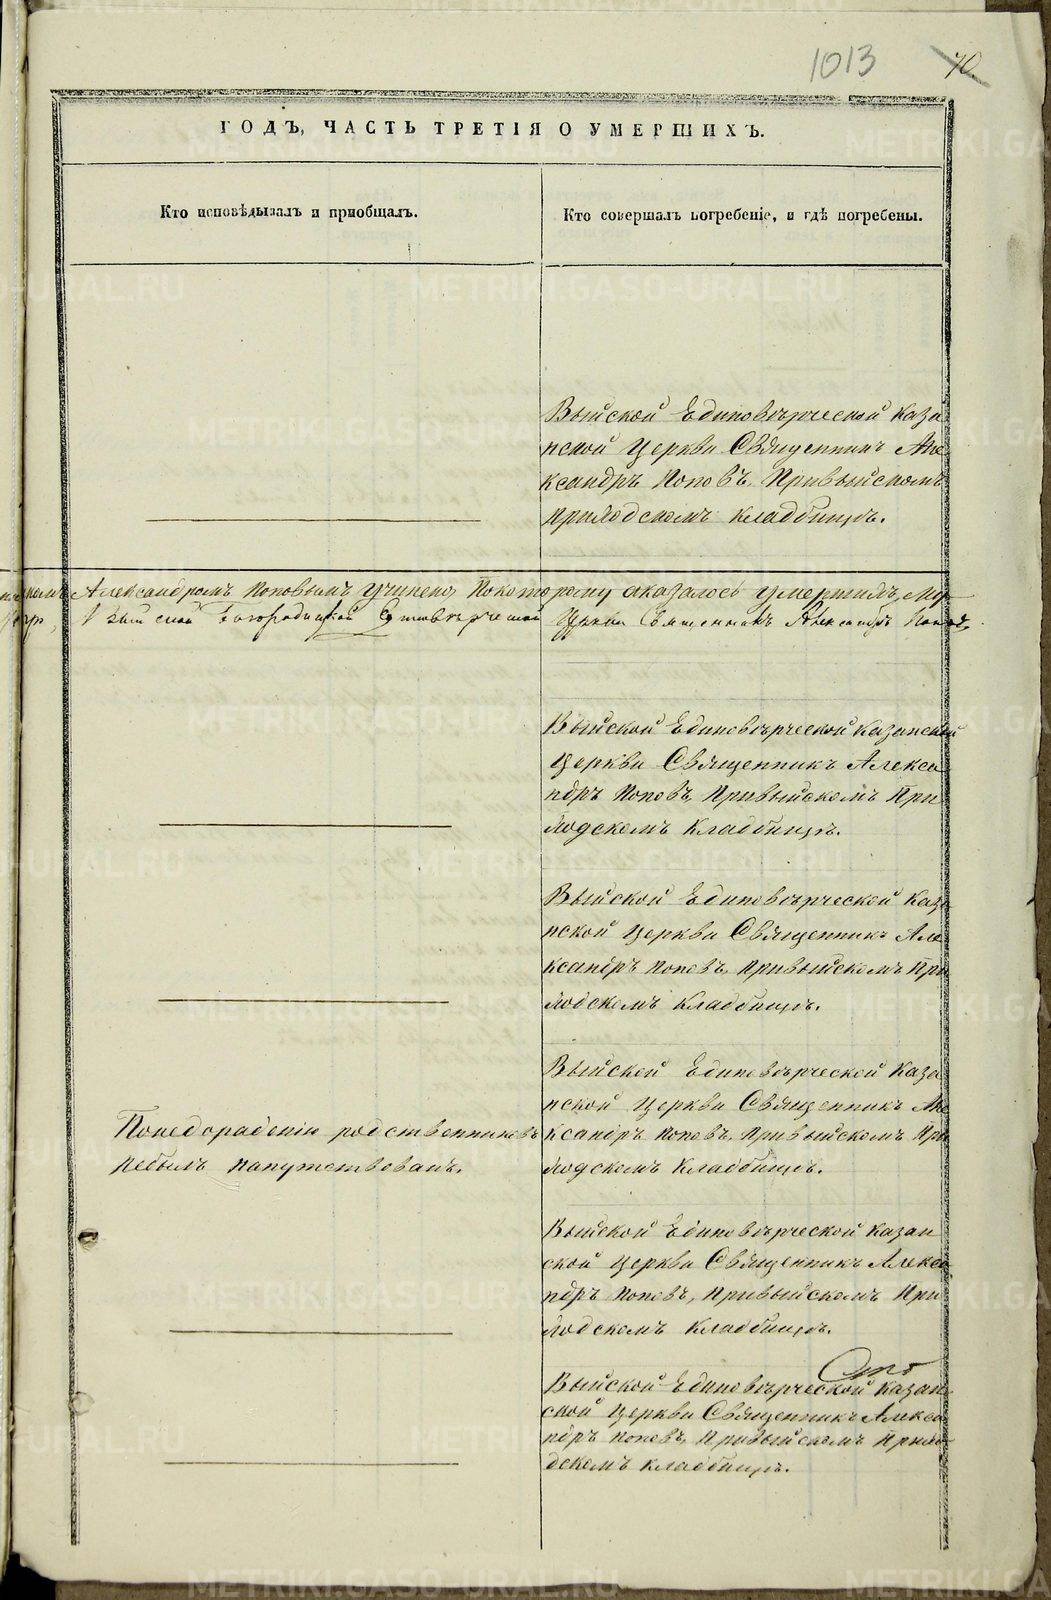 1013
70.
ГОДЪ, ЧАСТЬ ТРЕТІЯ О УМЕРШИХЪ.
Кто исповѣдывалъ и пріобщалъ.
Кто совершалъ погребеніе, и гдѣ погребены.
Выйской Единовѣрческой Каза
нской Церкви Священникъ Але
ксандръ Поповъ, Привыйскомъ
приходскомъ кладбищѣ.
Александромъ Поповымъ учинено, Покоторому оказалось умершихъ,
Церкви Священникъ Александръ Поповъ,
Выйской Единовѣрческой Казанской
Церкви Священникъ Алекса
ндръ Поповъ, Привыйскомъ При
ходскомъ Кладбищѣ.
Выйской Единовѣрческой Каза
нской Церкви Священникъ Але
ксандръ Поповъ, Привыйскомъ При
ходскомъ Кладбищѣ.
Выйской Единовѣрческой Каза
нской Церкви Священникъ Але
родственниковъ
ксандръ Поповъ, Привыйскомъ При
Небылъ напутствованъ.
ходскомъ Кладбищѣ.
Выйской Единовѣрческой Казан
ской Церкви Священникъ Алекса
ндръ Поповъ, Привыйскомъ При
ходскомъ Кладбищѣ.
Выйской Единовѣрческой Казан
ской Церкви Священникъ Алекса
ндръ Поповъ, Привыйскомъ Прихо
дскомъ кладбищѣ.
METRIKI.GASO-URAL.RU